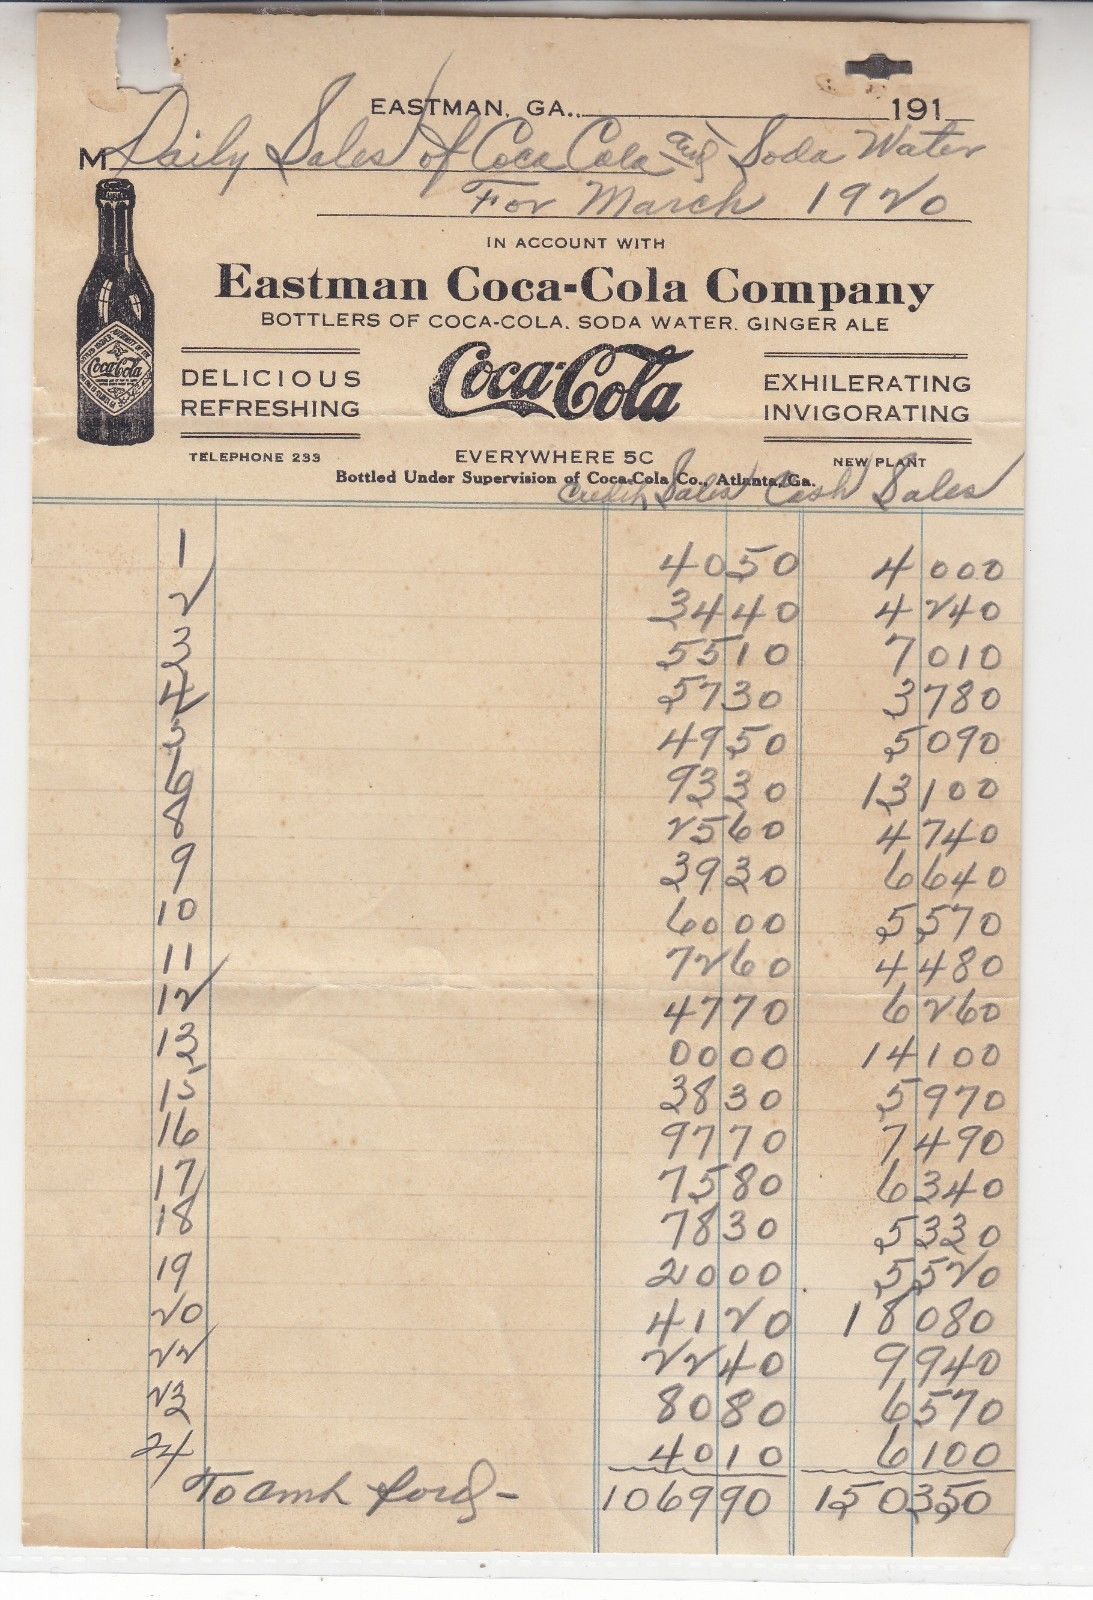 EASTMAN, GA. 191
M Daily Sales of Coca Cola and Soda Water
For March 1920
IN ACCOUNT WITH
Eastman Coca-Cola Company
BOTTLERS OF COCA-COLA. SODA WATER. GINGER ALE
DELICIOUS
REFRESHING
Coca-Cola
EXHILERATING
INVIGORATING
Coca-Cola
TELEPHONE 233
EVERYWHERE 5C
NEW PLANT
Bottled Under Supervision of Coca-Cola Co., Atlanta, Ga.
Credit Sales Cash Sales
1 40 50 40 00
2 34 40 42 40
3 55 10 70 10
4 57 30 37 80
5 49 50 50 90
6 93 30 131 00
8 25 60 47 40
9 39 30 66 40
10 60 00 55 70
11 72 60 44 80
12 47 70 62 60
13 00 00 141 00
15 38 30 59 70
16 97 70 74 90
17 75 80 63 40
18 78 30 53 30
19 20 00 55 20
20 41 20 180 80
22 22 40 99 40
23 80 80 65 70
24 40 10 61 00
To amt ford - 1069 90 1503 50